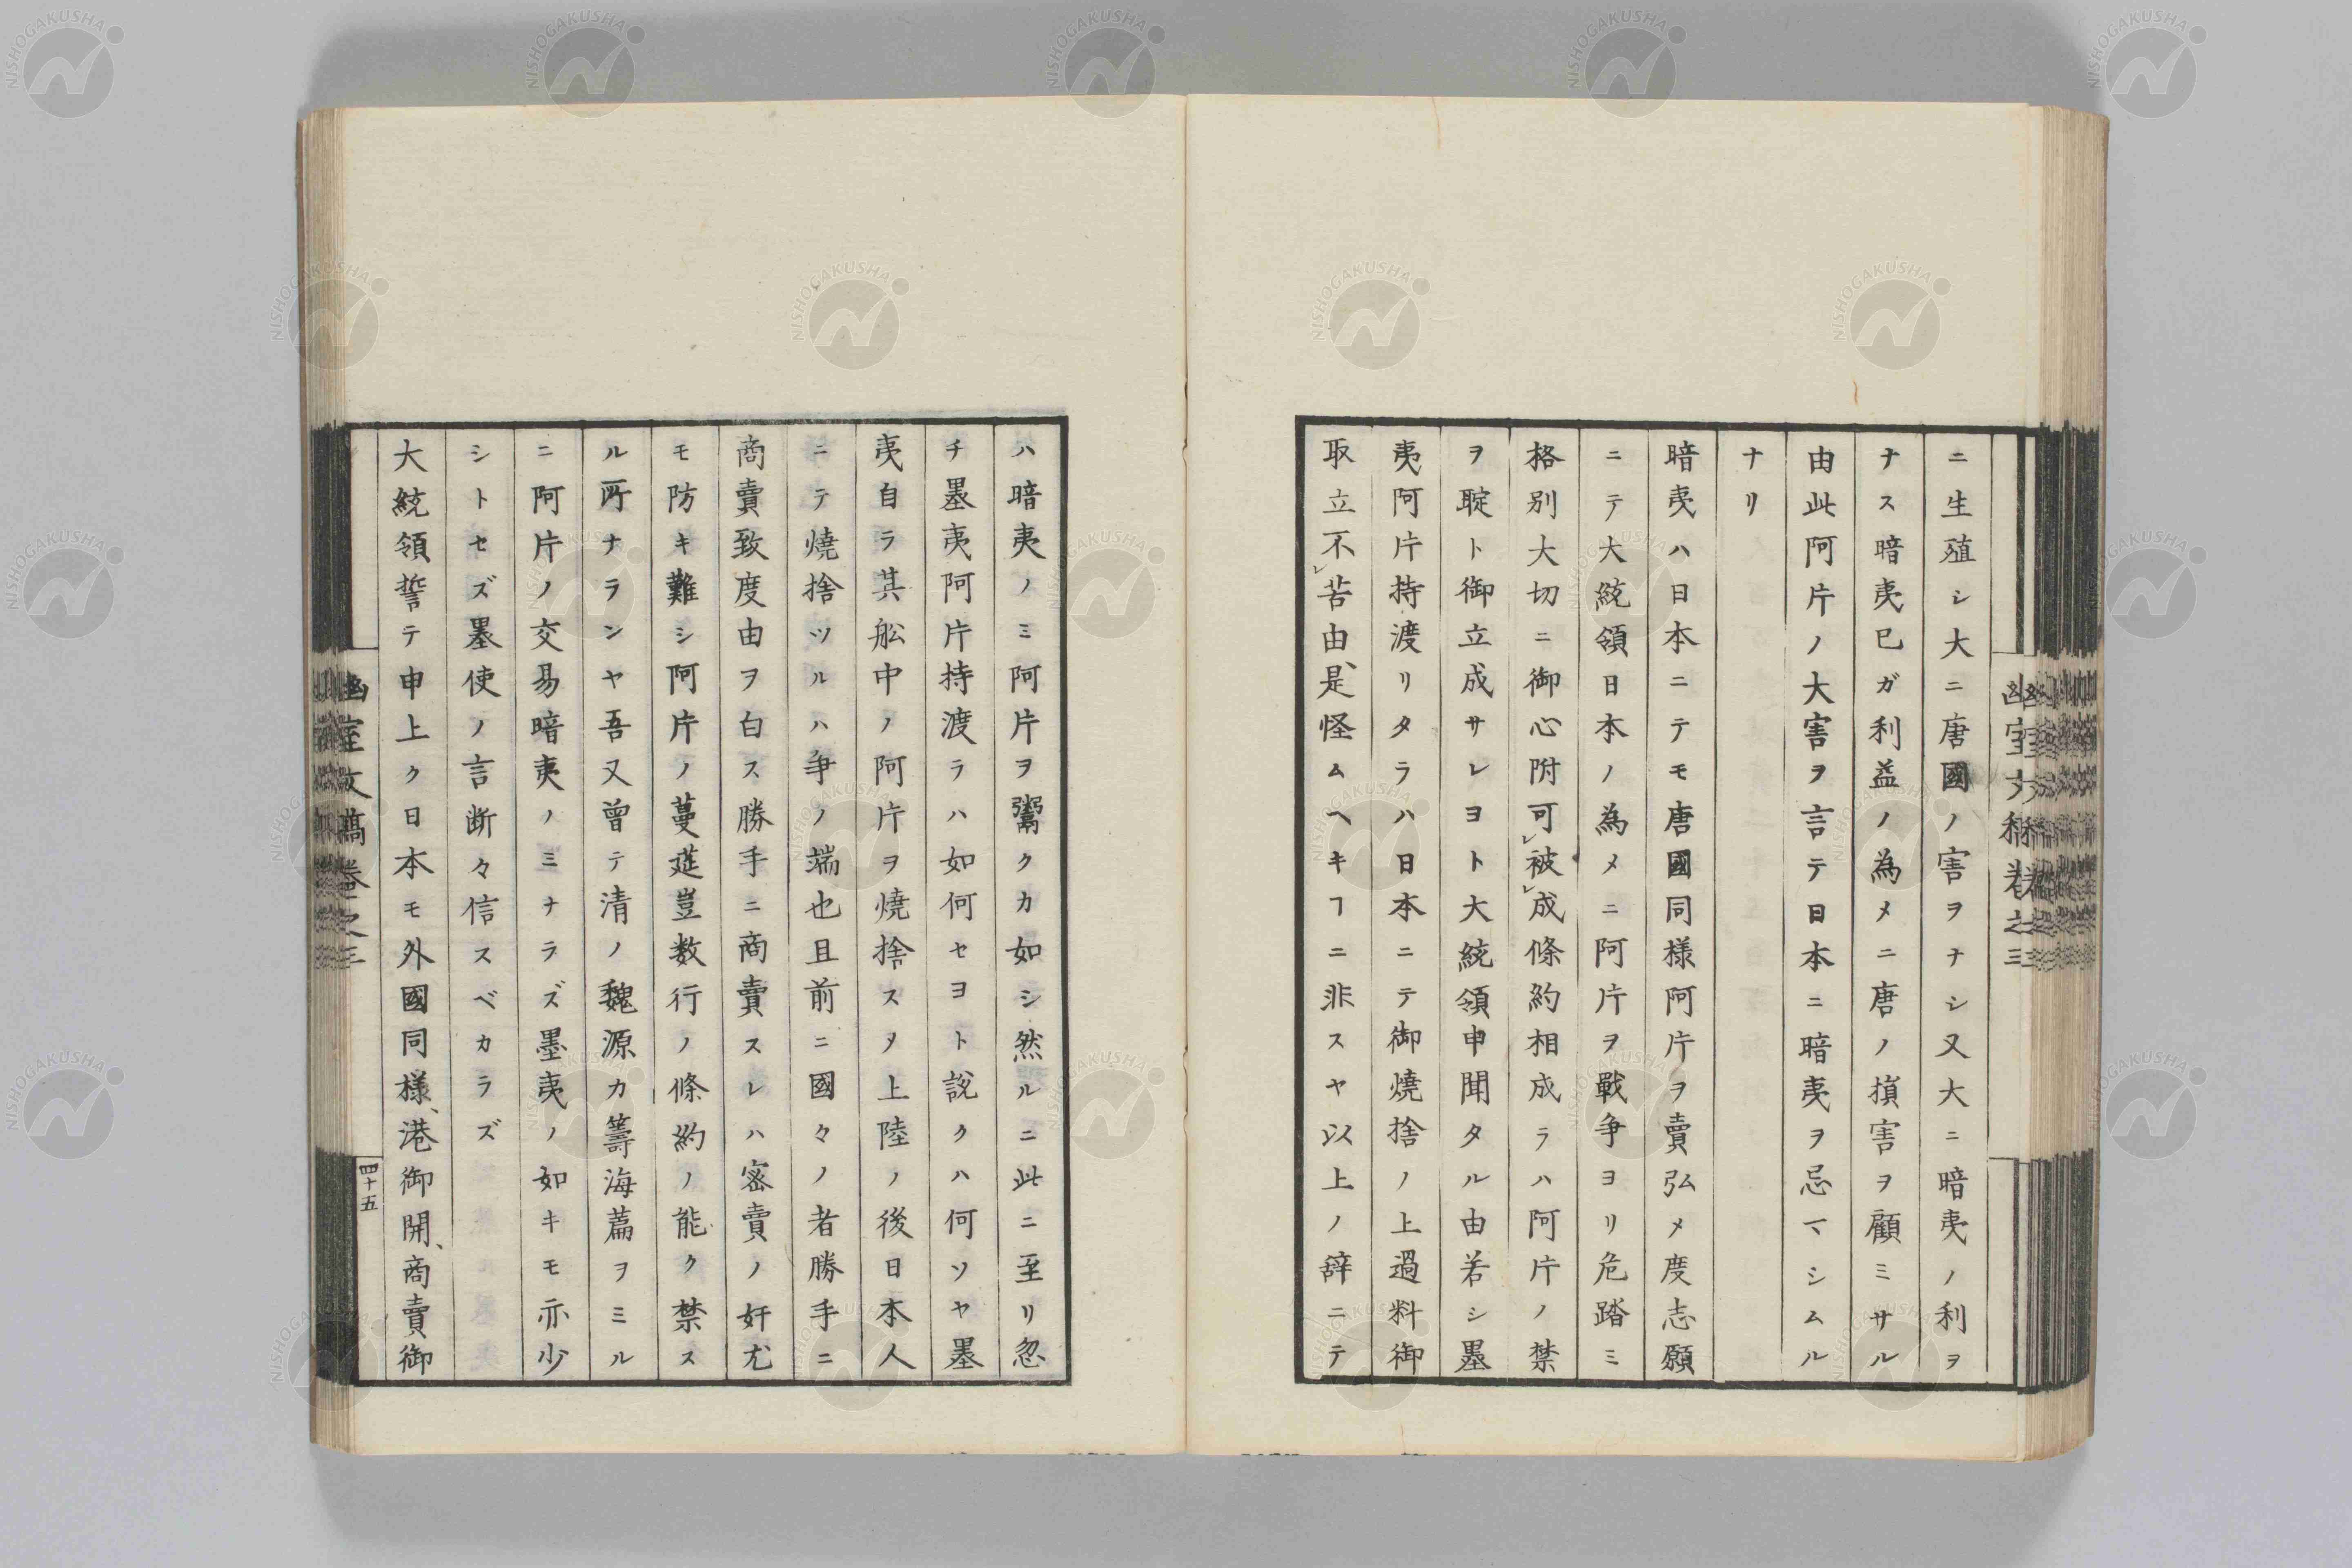 幽室文稿卷之三
ニ生殖シ大ニ唐國ノ害ヲナシ又大ニ暗夷ノ利ヲ
ナス暗夷已ガ利益ノ為メニ唐ノ損害ヲ顧ミサル
由此阿片ノ大害ヲ言テ日本ニ暗夷ヲ忌マシムル
ナリ
暗夷ハ日本ニテモ唐國同様阿片ヲ賣弘メ度志願
ニテ大統領日本ノ為メニ阿片ヲ戰争ヨリ危踏ミ
格別大切ニ御心附可被成條約相成ラハ阿片ノ禁
ヲ聢ト御立成サレヨト大統領申聞タル由若シ墨
夷阿片持渡リタラハ日本ニテ御燒捨ノ上過料御
取立不苦由是怪ムヘキヿニ非スヤ以上ノ辞ニテ
ハ暗夷ノミ阿片ヲ鬻クカ如シ然ルニ此ニ至リ忽
チ墨夷阿片持渡ラハ如何セヨト說クハ何ソヤ墨
夷自ラ其舩中ノ阿片ヲ燒捨スヲ上陸ノ後日本人
ニテ燒捨ツルハ争ノ端也且前ニ國々ノ者勝手ニ
商賣致度由ヲ白ス勝手ニ商賣スレハ密賣ノ奸尤
モ防キ難シ阿片ノ蔓莚豈数行ノ條約ノ能ク禁ス
ル所ナランヤ吾又曾テ清ノ魏源カ籌海篇ヲミル
ニ阿片ノ交易暗夷ノミナラズ墨夷ノ如キモ亦少
シトセズ墨使ノ言断々信スベカラズ
大統領誓テ申上ク日本モ外國同様、港御開、商賣御
幽室文稿卷之三
四十五
NISHOGAKUSHA